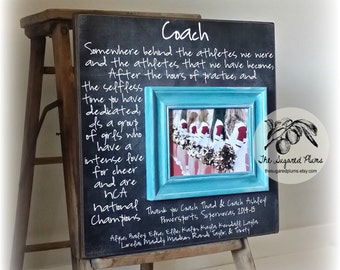 Coach
Somewhere behind the athletes we were
and the athletes that we have become,
After the hours of practice, and
the selfless
time you have
dedicated,
Is a group
of girls who
have a
intense love
for cheer
and are
NCA
National
Champions.
Thank you Coach Thad & Coach Ashley
Powersports Supernovas 2014-15
Kayla Kendall Layla
Maddy
The Sugared Plums
thesugaredplums.etsy.com